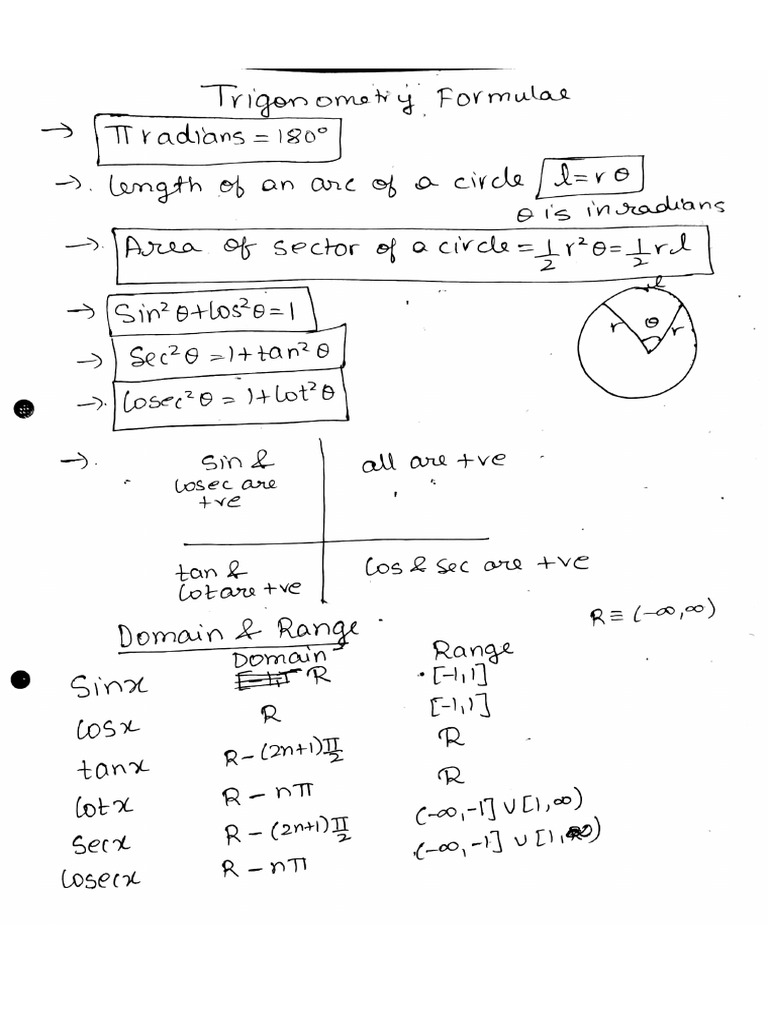 Trigonometry Formulae
→ π radians = 180°
→. length of an arc of a circle l = r θ
θ is in radians
→. Area of sector of a circle = 1/2 r² θ = 1/2 r l
l
r θ r
→ Sin² θ + Cos² θ = 1
→ Sec² θ = 1 + tan² θ
→. Cosec² θ = 1 + Cot² θ
→. Sin & all are +ve
Cosec are
+ve
tan & Cos & sec are +ve
Cot are +ve
R ≡ (-∞, ∞)
Domain & Range
Domain Range
Sinx R [-1, 1]
Cosx R [-1, 1]
tanx R - (2n+1) π/2 R
Cotx R - nπ R
Secx R - (2n+1) π/2 (-∞, -1] ∪ [1, ∞)
Cosecx R - nπ (-∞, -1] ∪ [1, ∞)